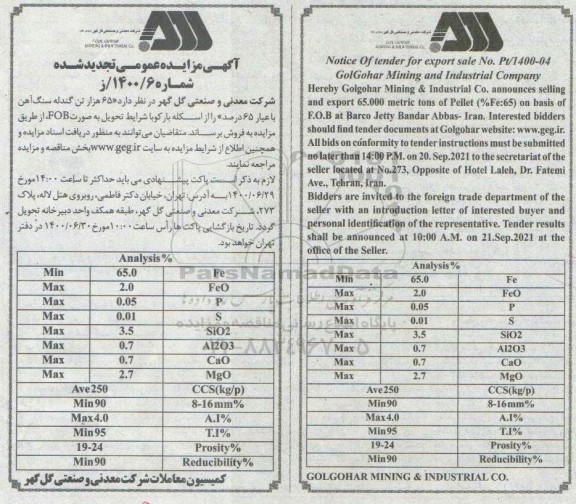 شرکت معدنی و صنعتی گل گهر
GOL GOHAR
MINING & INDUSTRIAL CO.
آگهی مزایده عمومی تجدید شده
شماره ۱۴۰۰/۶/ز
شرکت معدنی و صنعتی گل گهر در نظر دارد «۶۵ هزار تن گندله سنگ آهن
با عیار ۶۵ درصد» را از اسکله بارکو با شرایط تحویل به صورت FOB، از طریق
مزایده به فروش برساند. متقاضیان می توانند به منظور دریافت اسناد مزایده و
همچنین اطلاع از شرایط مزایده به سایت www.geg.ir بخش مناقصه و مزایده
مراجعه نمایند.
لازم به ذکر است پاکت پیشنهادی می باید حداکثر تا ساعت ۱۴:۰۰ مورخ
۱۴۰۰/۰۶/۲۹ به آدرس: تهران، خیابان دکتر فاطمی، روبروی هتل لاله، پلاک
۲۷۳، شرکت معدنی و صنعتی گل گهر، طبقه همکف واحد دبیرخانه تحویل
گردد. تاریخ بازگشایی پاکت ها رأس ساعت ۱۰:۰۰ مورخ ۱۴۰۰/۰۶/۳۰ در دفتر
تهران خواهد بود.
Analysis%
Min 65.0 Fe
Max 2.0 FeO
Max 0.05 P
Max 0.01 S
Max 3.5 SiO2
Max 0.7 Al2O3
Max 0.7 CaO
Max 2.7 MgO
Ave 250 CCS(kg/p)
Min 90 8-16mm%
Max 4.0 A.I%
Min 95 T.I%
19-24 Prosity%
Min 90 Reducibility%
کمیسیون معاملات شرکت معدنی و صنعتی گل گهر
شرکت معدنی و صنعتی گل گهر
GOL GOHAR
MINING & INDUSTRIAL CO.
Notice Of tender for export sale No. Pt/1400-04
GolGohar Mining and Industrial Company
Hereby Golgohar Mining & Industrial Co. announces selling
and export 65.000 metric tons of Pellet (%Fe:65) on basis of
F.O.B at Barco Jetty Bandar Abbas- Iran. Interested bidders
should find tender documents at Golgohar website: www.geg.ir.
All bids on conformity to tender instructions must be submitted
no later than at 14:00 P.M. on 20. Sep.2021 to the secretariat of the
seller located at No.273, Opposite of Hotel Laleh, Dr. Fatemi
Ave., Tehran, Iran.
Bidders are invited to the foreign trade department of the
seller with an introduction letter of interested buyer and
personal identification of the representative. Tender results
shall be announced at 10:00 A.M. on 21.Sep.2021 at the
office of the Seller.
Analysis%
Min 65.0 Fe
Max 2.0 FeO
Max 0.05 P
Max 0.01 S
Max 3.5 SiO2
Max 0.7 Al2O3
Max 0.7 CaO
Max 2.7 MgO
Ave 250 CCS(kg/p)
Min 90 8-16mm%
Max 4.0 A.I%
Min 95 T.I%
19-24 Prosity%
Min 90 Reducibility%
GOLGOHAR MINING & INDUSTRIAL CO.
ParsNamadData